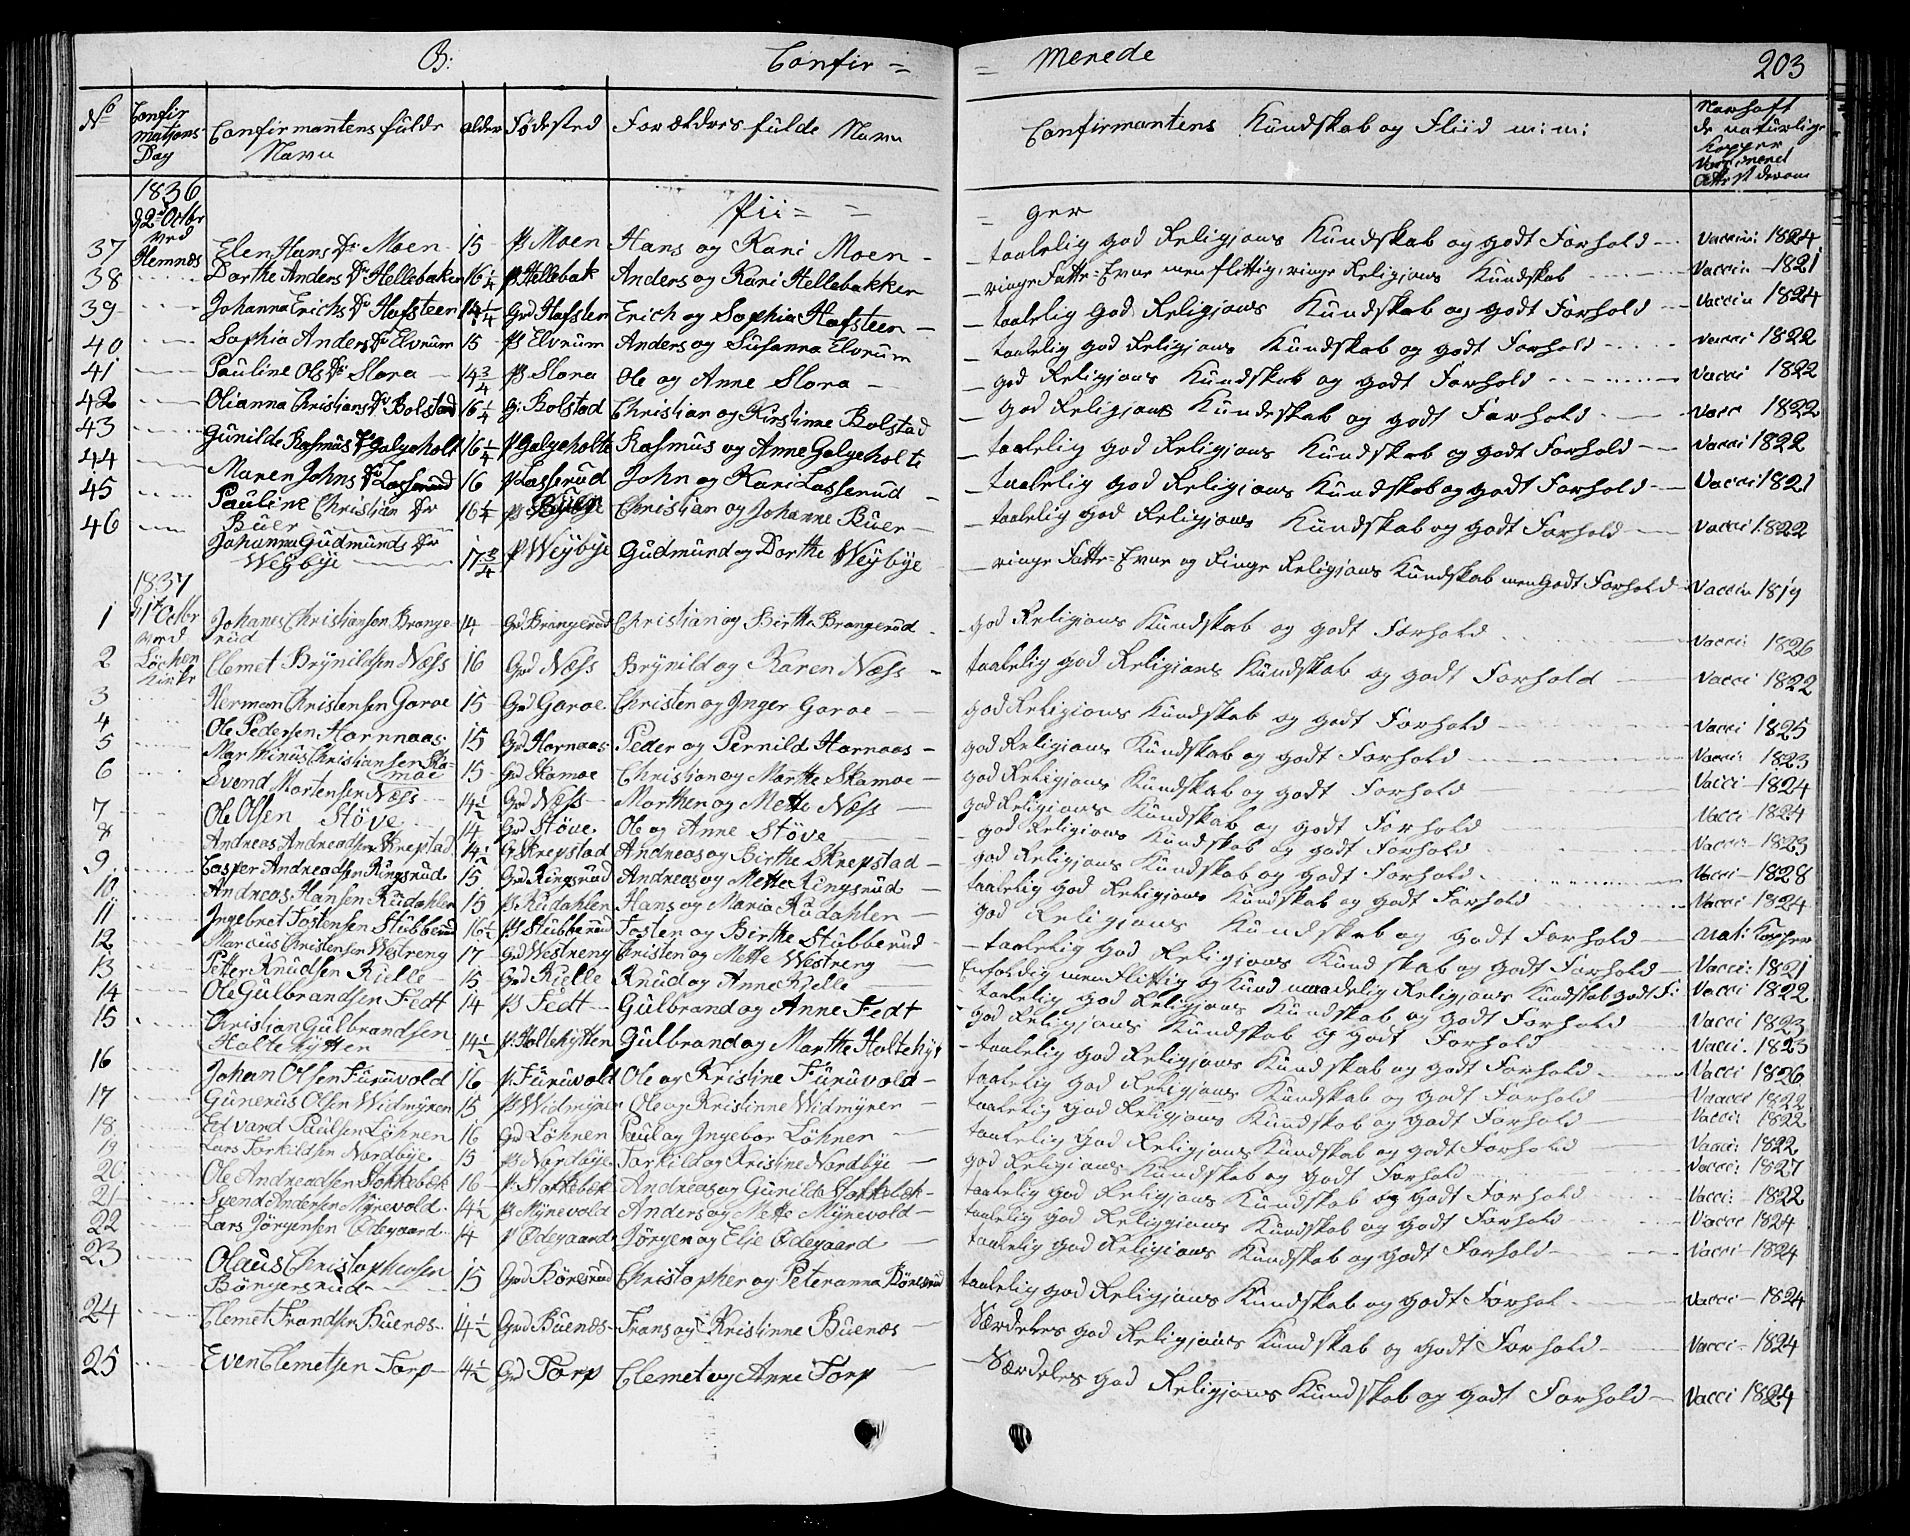 B: Confir = = merede 203
No Confirmations Dag Confirmantens fulde Navn alder Fødested Forældres fulde Navn Confirmantens Kundskab og Fliid m: m: Navhaft de naturlige Kopper
1836
d 2d Octbr Pii = = = ger
ved
Hemnæs
37 Elen Hans Dr Moen 15 P Moen Hans og Kari Moen taalelig god Religjons Kundskab og godt Forhold Vaccin: 1824
38 Dorthe Anders Dr Hellebakken 16 1/4 P Hellebak Anders og Kari Hellebakken ringe Fatte=Evne men flittig, ringe Religjons Kundskab Vaccin 1821
39 Johanna Erichs Dr Hafsteen 14 1/4 Grd Hafsten Erich og Sophia Hafsteen taalelig god Religjons Kundskab og godt Forhold Vaccin 1824
40 Sophia Anders Dr Elvrum 15 P Elvrum Anders og Susanna Elvrum taalelig god Religjons Kundskab og godt Forhold Vacci 1822
41 Pauline Ols Dr Slora 14 3/4 P Slora Ole og Anne Slora god Religjons Kundskab og godt Forhold Vacci 1822
42 Olianna Christians Dr Bolstad 16 1/4 G: Bolstad Christian og Kirstinne Bolstad God Religjons Kundeskab og godt Forhold Vacc 1822
43 Gunilde Rasmus Dr Galgeholt 16 1/4 P Galgeholte Rasmus og Anne Galgeholte taalelig god Religjons Kundskab og godt Forhold Vacci 1822
44 Maren Johns Dr Lasserud 16 P Lasserud John og Kari Lasserud taalelig god Religjons Kundskab og godt Forhold Vacci 1821
45 Pauline Christian Dr Buer 16 1/4 P Christian og Johanne Buer taalelig god Religjons Kundskab og godt Forhold Vacci 1822
46 Johanna Gudmunds Dr Weybÿe 17 3/4 P Weybÿe Gudmund og Dorthe Weybÿe ringe Fatte=Evne og Ringe Religjons Kundskab men Godt Forhold Vaccin 1819
1837
d 1st Octbr
ved
Løchen
Kirke
1 Johanes Christiansen Brangerud 14 Grd Brangerud Christian og Birthe Brangerud god Religjons Kundskab og godt Forhold Vacci: 1826
2 Clemet Brÿnildsen Næss 16 Grd Næss Brÿnild og Karen Næss taalelig god Religjons Kundskab og godt Forhold Vacci 1822
3 Herman Christensen Garae 15 Grd Garae Christen og Inger Garae god Religions Kundskab og godt Forhold Vacci 1825
4 Ole Pedersen Hornnaas 15 Grd Hornaas Peder og Pernild Hornaas god Religjons Kundskab og godt Forhold Vacci: 1823
5 Marthinus Christiansen Skamoe 15 Gd Skamoe Christian og Marthe Skamoe god Religjons Kundskab og godt Forhold Vacci 1824
6 Svend Mortensen Næss 14 1/2 Grd Næss Morthen og Mette Næss god Religjons Kundskab og godt Forhold Vacci 1824
7 Ole Olsen Støve 14 Grd Støve Ole og Anne Støve god Religjons Kundskab og godt Forhold Vacci: 1823
8 Andreas Andreadsen Skrepstad 14 1/2 G Skrepstad Andreas og Birthe Skrepstad god Religjons Kundskab og godt Forhold Vacci 1828
9 Casper Andreadsen Ringsrud 15 Grd Ringsrud Andreas og Mette Ringsrud taalelig god Religjons Kundskab og godt Forhold Vacci 1824
10 Andreas Hansen Rudahlen 15 P Rudahlen Hans og Maria Rudahlen god Religjons Kundskab og godt Forhold Nat: Kopper
11 Ingebret Tostensen Stubberud 16 1/2 P Stubberud Tosten og Birthe Stubberud taalelig God Religjons Kundskab og godt Forhold Vacci: 1821
12 Marcus Christensen Westreng 17 Grd Westreng Christen og Mette Westreng Enfoldig men Flittig og Religjons Kundskab godt F: Vacci 1822
13 Petter Knudsen Kielle 15 Grd Kielle Knud og Anne Kielle taalelig god Religjons Kundskab og godt Forhold Vacci 1823
14 Ole Gulbrandsen Fedt 14 P Fedt Gulbrand og Anne Fedt god Religjons Kundskab og godt Forhold Vacci. 1823
15 Christian Gulbrandsen Holtehytten 14 1/2 P Holtehytten Gulbrand og Marthe Holtehÿt taalelig god Religjons Kundskab og godt Forhold Vacci 1826
16 Johan Olsen Furuvold 16 P Furuvold Ole og Kristine Furuvold taalelig god Religjons Kundskab og godt Forhold Vaacci 1822
17 Gunerus Olsen Widmÿren 15 P Widmÿren Ole og Kristinne Widmÿren taalelig god Religjons Kundskab og godt Forhold Vacci: 1822
18 Edvard Paulsen Løhnen 16 Grd Løhnen Paul og Ingebor Løhnen taalelig god Religjons Kundskab og godt Forhold Vacci: 1822
19 Lars Torkildsen Nordbÿe 15 P Nordbÿe Torkild og Kristine Nordbÿe god Religions Kundskab og godt Forhold Vacci: 1827
20 Ole Andreadsen Stokkebek 16 P Stokkebek Andreas og Gunilda Stokkebek taalelig god Religjons Kundskab og godt Forhold Vacci: 1822
21 Svend Andersen Mÿrevold 14 1/2 P Mÿrevold Anders og Mette Mÿrevold taalelig God Religjons Kundskab og godt Forhold Vacci 1824
22 Lars Jørgensen Ødegaard 14 P Ødegaard Jørgen og Elje Ødegaard taalelig god Religjons Kundskab og godt Forhold Vacci 1824
23 Olaus Christophersen Børgersrud 15 Grd Børesrud Christopher og Peteranna Børesrud taalelig god Religjons Kundskab og godt Forhol Vacci 1824
24 Clemet Frandsen Buenæs 14 1/2 Grd Buenæs Frans og Kristinne Buenæs Særdeles god Religjons Kundskab og godt Forhold Vacci 1824
25 Even Clemetsen Torp 14 1/2 Grd Torp Clemet og Anne Torp Særdeles god Religjons Kundskab og godt Forhold Vacci 1824